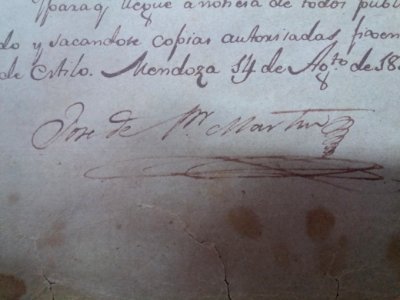 para q llegue a noticia de todos publ
do y sacandose copias autorisadas,
de Estilo. Mendoza 14 de Ag.to de 18
Jose de Sn. Martin